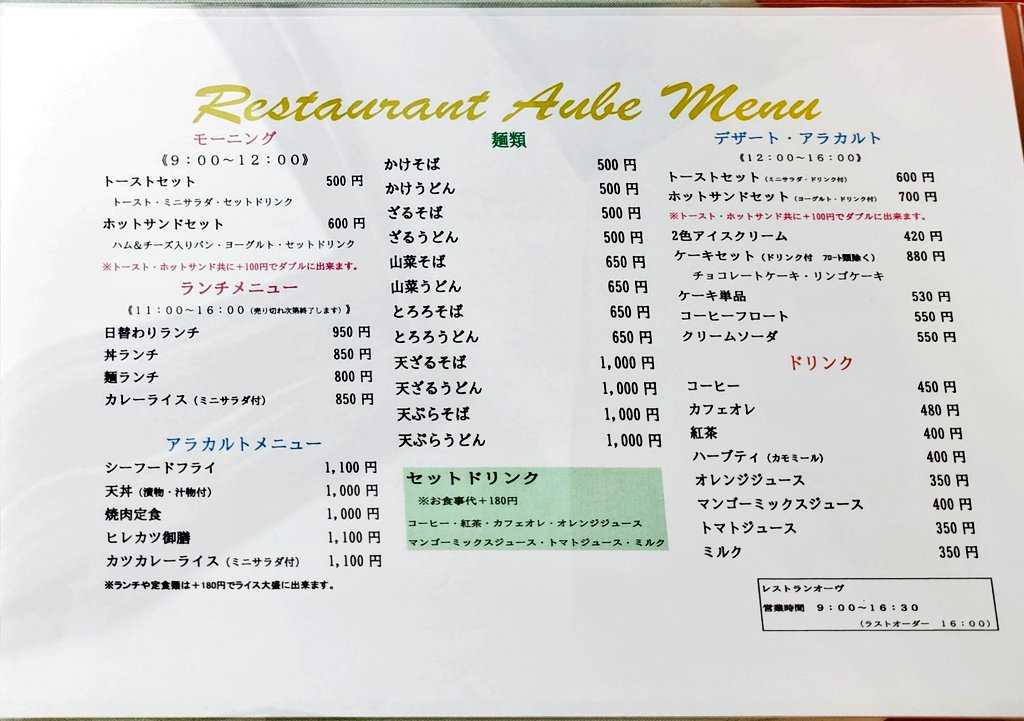 Restaurant Aube Menu
モーニング
《９：００～１２：００》
トーストセット 500 円
トースト・ミニサラダ・セットドリンク
ホットサンドセット 600 円
ハム＆チーズ入りパン・ヨーグルト・セットドリンク
※トースト・ホットサンド共に＋100円でダブルに出来ます。
ランチメニュー
《１１：００～１６：００（売り切れ次第終了します）》
日替わりランチ 950 円
丼ランチ 850 円
麺ランチ 800 円
カレーライス（ミニサラダ付） 850 円
アラカルトメニュー
シーフードフライ 1,100 円
天丼（漬物・汁物付） 1,000 円
焼肉定食 1,000 円
ヒレカツ御膳 1,100 円
カツカレーライス（ミニサラダ付） 1,100 円
※ランチや定食類は＋180円でライス大盛に出来ます。
麺類
かけそば 500 円
かけうどん 500 円
ざるそば 500 円
ざるうどん 500 円
山菜そば 650 円
山菜うどん 650 円
とろろそば 650 円
とろろうどん 650 円
天ざるそば 1,000 円
天ざるうどん 1,000 円
天ぷらそば 1,000 円
天ぷらうどん 1,000 円
セットドリンク
※お食事代＋180円
コーヒー・紅茶・カフェオレ・オレンジジュース
マンゴーミックスジュース・トマトジュース・ミルク
デザート・アラカルト
《１２：００～１６：００》
トーストセット（ミニサラダ・ドリンク付） 600 円
ホットサンドセット（ヨーグルト・ドリンク付） 700 円
※トースト・ホットサンド共に＋100円でダブルに出来ます。
2色アイスクリーム 420 円
ケーキセット（ドリンク付 ﾌﾛｰﾄ類除く） 880 円
チョコレートケーキ・リンゴケーキ
ケーキ単品 530 円
コーヒーフロート 550 円
クリームソーダ 550 円
ドリンク
コーヒー 450 円
カフェオレ 480 円
紅茶 400 円
ハーブティ（カモミール） 400 円
オレンジジュース 350 円
マンゴーミックスジュース 400 円
トマトジュース 350 円
ミルク 350 円
レストランオーヴ
営業時間 ９：００～１６：３０
（ラストオーダー １６：００）